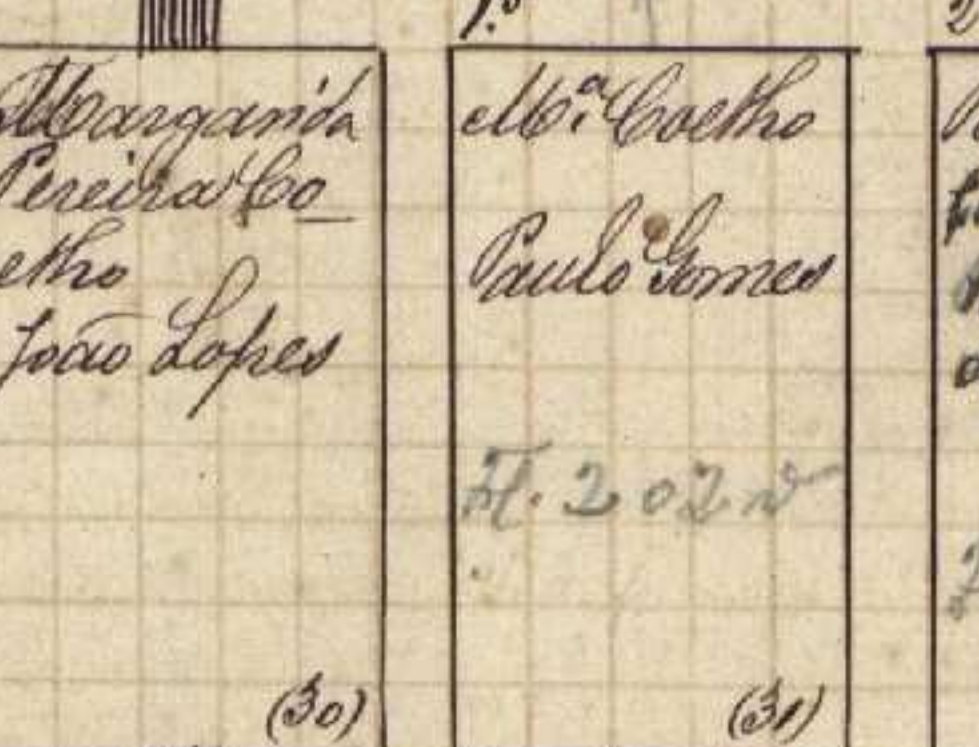 1.º
Margarida
Pereira Co
elho
João Lopes
(30)
M.ª Coelho
Paulo Gomes
Fl. 202 v
(31)